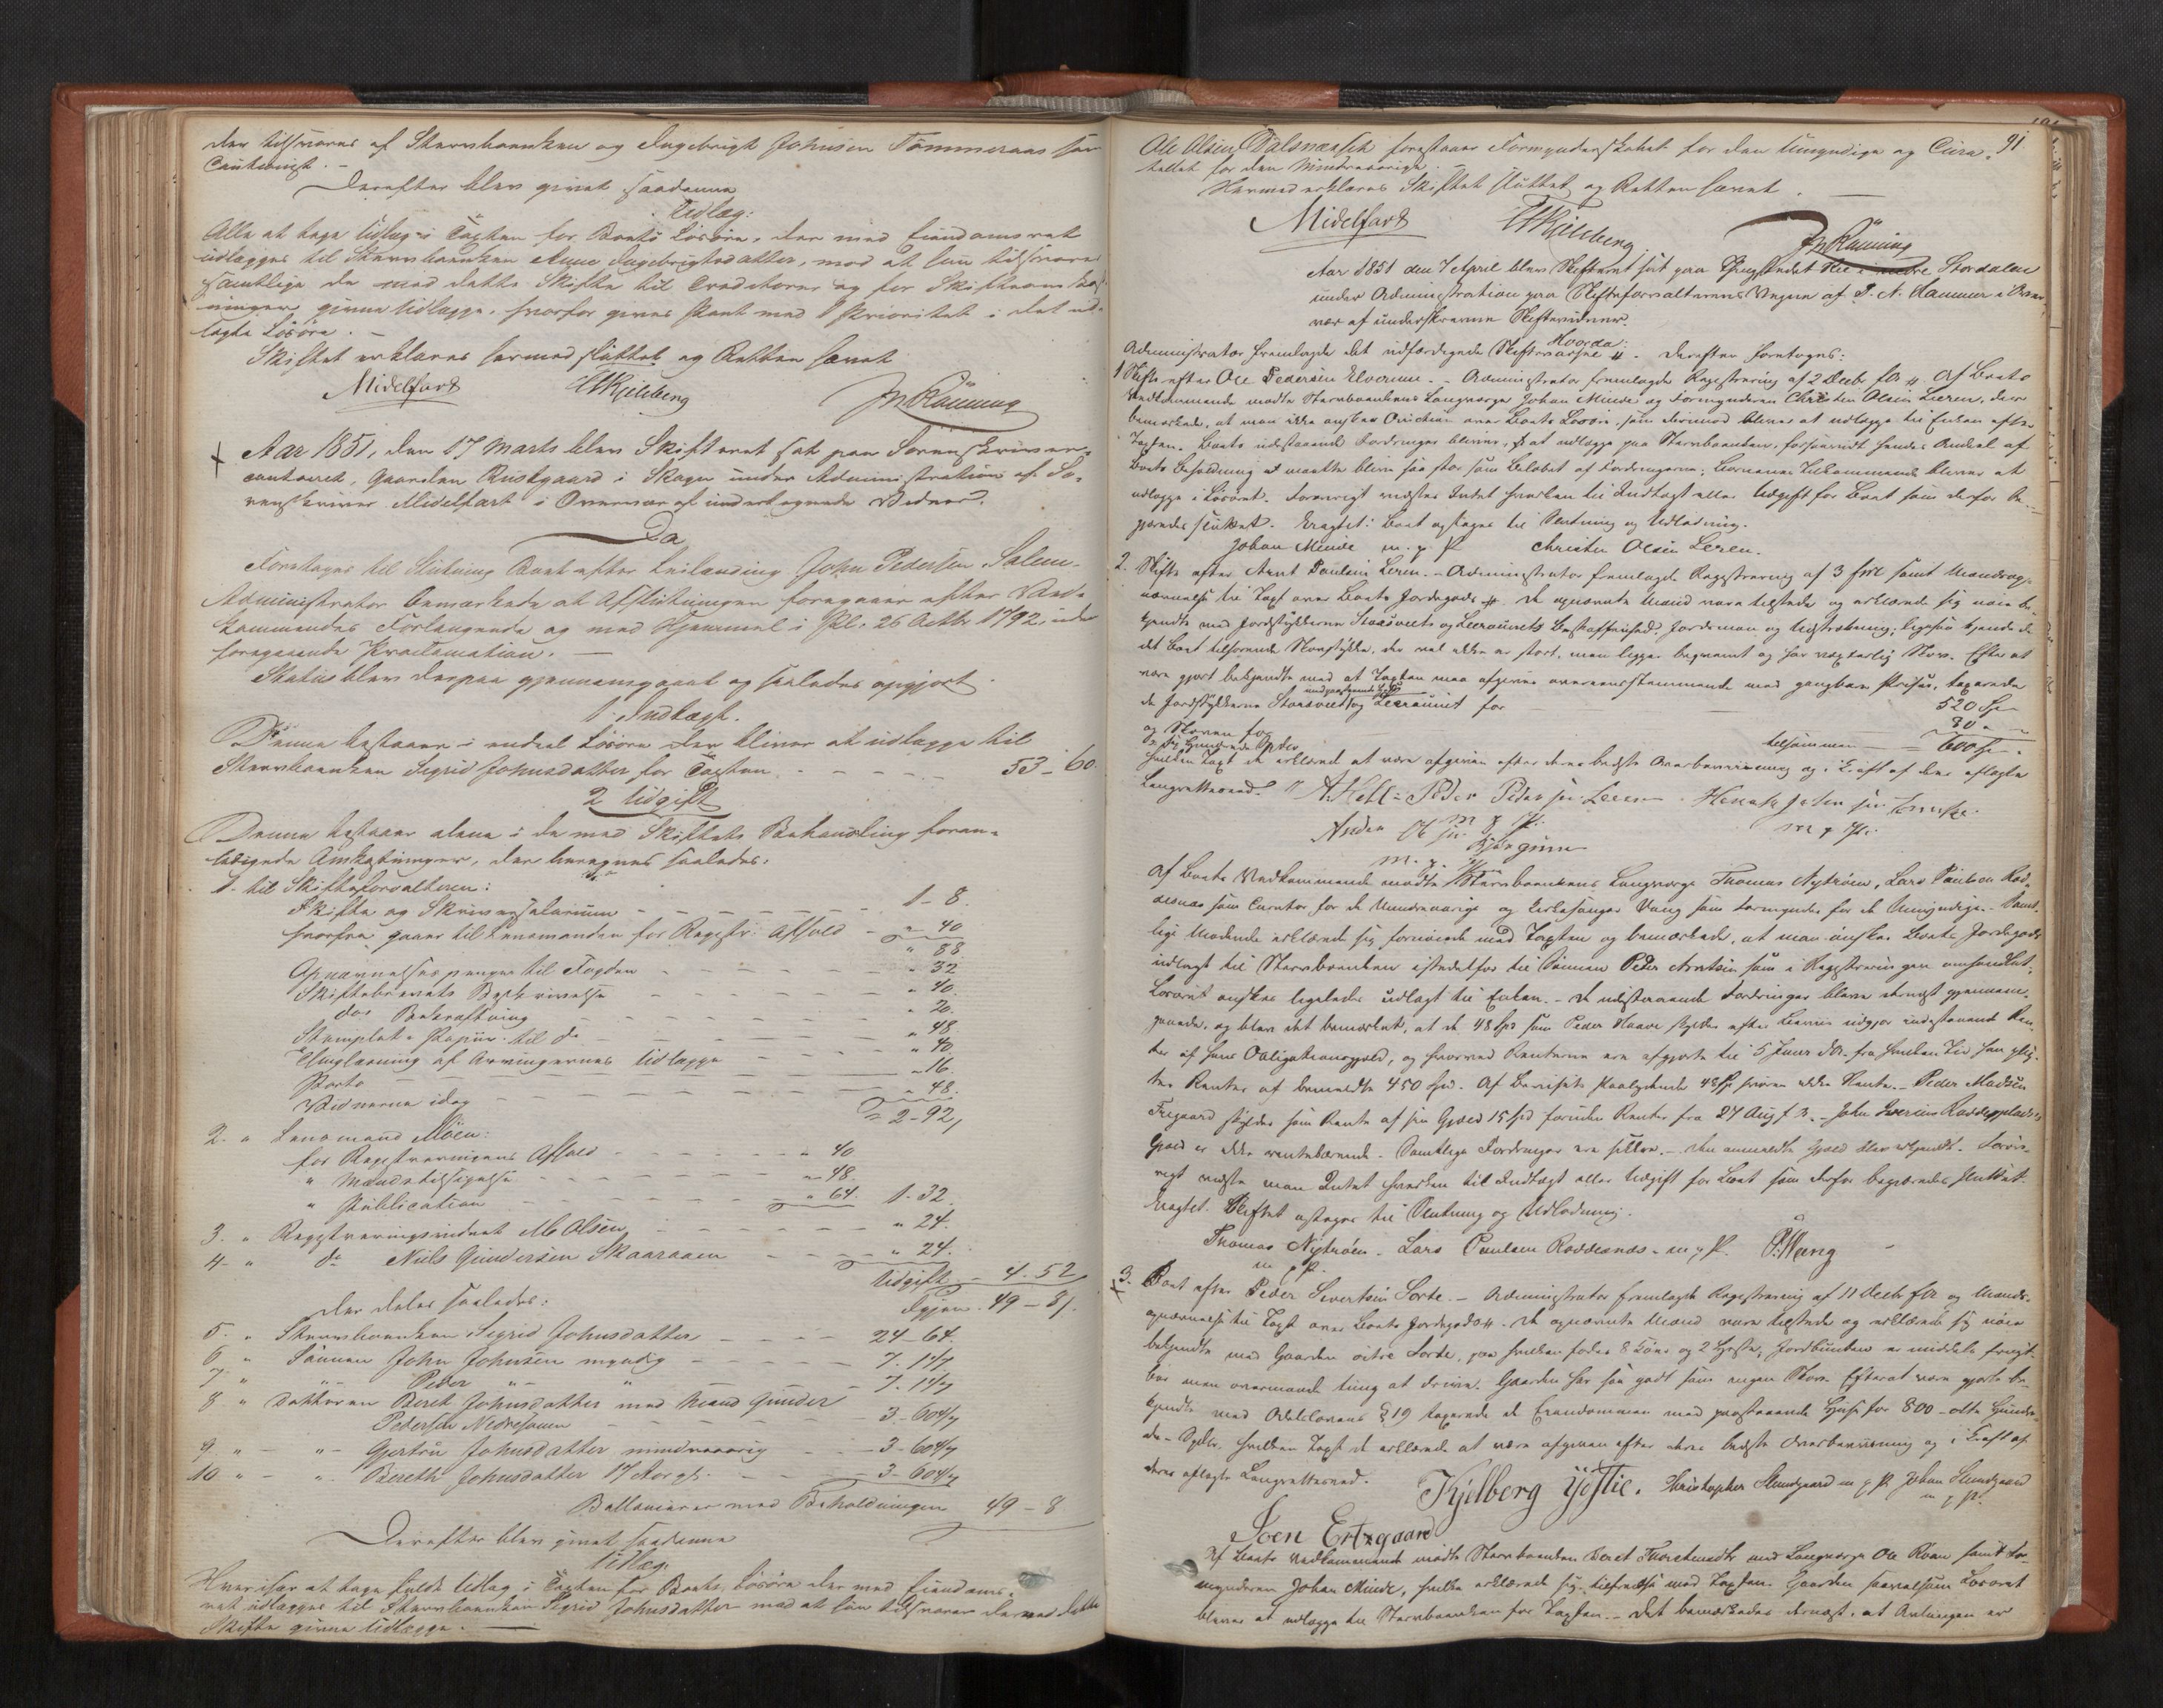 der tilsvares af Stervboenken og Ingebrigt Johnsen Tømmeraas som
Cautionist. –
Derefter blev givet saadanne
Udlæg:
Alle at tage Udlæg i Taxten for Boets Løsøre, der med Eiendomsret
udlægges til Stervboenken Anne Ingebrigtsdatter, mod at hun tilsvarer
samtlige de med dette Skifte til Creditorer og for Skifteomkost-
ninger givne Udlægge, hvorfor gives Pant med 1 Prioritet i det ud-
lagte Løsøre. –
Skiftet erklæres hermed sluttet og Retten hævet
Midelfart HKjelberg JnRønning
Aar 1851, den 17 Marts blev Skifteret sat paa Sorenskriver-
contoiret, Gaarden Rustgaard i Skogn under Administration af So-
renskriver Midelfart i Overvær af undertegnede Vidner.
Da
Foretages til Slutning Boet efter Leilænding John Pedersen Salem-
Administrator bemærkede at Afslutningen foregaaer efter Ved-
kommendes Forlangende og med Hjemmel i Pl. 26 Octbr 1792 uden
foregaaende Proclamation. –
Status blev derpaa gjennemgaaet og saaledes opgjort
1. Indtægt.
Denne bestaaer i endeel Løsøre der bliver at udlægge til
Stervboenken Sigrid Johnsdatter for Taxten – – – – 53 – 60.
2 Udgift
Denne bestaaer alene i de med Skiftets Behandling foran-
ledigede Omkostninger, der beregnes saaledes:
1. til Skifteforvalteren:
Skifte og Skriversalarium – – – – – 1 – 8.
hvorfra gaaer til Lensmanden for Registr. Afhold – " 40
" 88
Opnævnelsespenge til Fogden – – – – – " 32
Skiftebrevets Beskrivelse – – – – – " 40.
dos Bekræftning – – – – – " 20.
Stemplet Papiir til do – – – – – " 48.
Thinglæsning af Arvingernes Udlægge – – – – " 40
Porto – – – – – " 16.
Vidnerne idag – – – – – " 48.
= 2 – 92,
2. " Lensmand Møen:
for Registreringens Afhold – – – – " 40
" Mændstilsigelse – – – – " 48.
" Publication – – – – " 64. 1 – 32.
3. " Registreringsvidnet M Olsen – – – – " 24.
4 – " do Niels Gundersen Skaaraaen – – – – " 24.
Udgift – 4. 52
Igjen. 49 – 8/.
der deles saaledes:
5. " Stervboenken Sigrid Johnsdatter – – – – 24 – 64.
6 " Sønnen John Johnsen myndig – – – – 7. 1 1/7
7 " " – Peder " – " – – 7. 1 1/7
8 " Datteren Beret Johnsdatter med Mand Gunder
Pedersen – – – – 3 – 60 4/7
9. " – " – Gjertru Johnsdatter mindreaarig – – – 3 – 60 4/7
10 " – " – Bereth Johnsdatter 17 Aar gl. – – – 3 – 60 4/7
Ballancerer med Beholdningen 49 – 8
Derefter blev givet saadanne
Udlæg.
Hver især at tage fuldt Udlæg i Taxten for Boets Løsøre der med Eiendoms-
ret udlægges til Stervboenken Sigrid Johnsdatter mod at hun tilsvarer de med dette
Skifte givne Udlægge. –
91
Ole Olsen Dalsnæseth forestaaer Formynderskabet for den Umyndige og Cura-
tellet for den Mindreaarige. –
Hermed erklæres Skiftet sluttet og Retten hævet. –
Midelfart HKjelberg JnRønning
Aar 1851 den 7 April blev Skifteret sat paa Thingstedet Ree i nedre Stordalen
under Administration paa Skifteforvalterens Vegne af P. N. Hammer i Over-
vær af underskrevne Skiftevidner.
Hvorda:
Administrator fremlagde det udfærdigede Skiftevarsel #. Derefter foretoges:
1 Skifte efter Ole Pedersen Elverum. – Administrator fremlagde Registrering af 2 Decbr f. A. # Af Boets
Vedkommende mødte Stervboenkens Laugværge Johan Minde og Formynderen Christen Olsen Leren, der
bemærkede, at man ikke ønsker Auction over Boets Løsøre, som derimod bliver at udlægge til Enken efter
Taxten. Boets udestaaende Fordringer bliver at udlægge paa Stervboenken, forsaavidt hendes Andeel af
Boets Beholdning at maatte blive saa stor som Beløbet af Fordringerne; Børnenes Tilkommende bliver at
udlægge i Løsøret. Forøvrigt vidstes Intet hverken til Indtægt eller Udgift for Boet som derfor be-
gjæredes sluttet. Eragtet: Boet optages til Slutning og Udlodning.
Johan Minde m. p. P. Christen Olsen Leren.
2. Skifte efter Arnt Paulsen Leren. – Administrator fremlagde Registrering af 3 samt Mændsop-
nævnelse til Taxt over Boets Jordegods #. De opnævnte Mænd vare tilstede og erklærede sig nøie be-
kjendte med Jordstykkerne Staasveet og Leeraunets Beskaffenhed, Jordsmon og Udstrækning; ligesaa kjende de
det Boet tilhørende Skovstykke, der vel ikke er stort, men ligger beqvemt og har voxterlig Skov. Efter at
være gjort bekjendte med at Taxten maa afgives overeensstemmende med gangbare Priser, taxerede
de Jordstykkerne Staasveet og Leeraunet for – – – 520 Sp
og Skoven for – – – 80 " –
tilsammen = 600 Sp.
= Sex Hundrede Spdlr
hvilken Taxt de erklærede at være afgiven efter deres bedste Overbeviisning og i Kraft af den aflagte
Laugrettesed. A. Hell – Peder Pedersen Leeren Henrik
m. p. P. m. p. P.
Anders
m. p. P.
Af Boets Vedkommende mødte Stervboenkens Laugværge Thomas Nytrøen, Lars Paulsen Rod-
desnæs som Curator for de Mindreaarige og Kirkesanger Wang som Formynder for de Umyndige. – Samt-
lige Mødende erklærede sig fornøiede med Taxten og bemærkede, at man ønsker Boets Jordegods
udlagt til Stervboenken istedetfor til Sønnen Peder Arntsen som i Registreringen omhandlet;
Løsøret ønskes ligeledes udlagt til Enken. – De udestaaende Fordringer bleve dernæst gjennem-
gaaede, og blev det bemærket, at de 48 Spd som Peder Haave skylder efter Beviis udgjør indestaaende Ren-
ter af hans Obligationsgjæld, og hvorved Renterne ere afgjorte til 5 Januar d. A. fra hvilken Tid han plig-
ter Renter af bemeldte 450 Spd. Af Beviisets paalydende 48 Sp svares ikke Rente. – Peder Madsen
Trøgaard skylder som Rente af sin Gjæld 15 Spd foruden Renter fra 27 Aug f. A. – John Iversen Roddesplads's
Gjæld er ikke rentebærende. Samtlige Fordringer ere sikkre. – Den anmeldte Gjæld blev erkjendt. Forøv-
rigt vidste man Intet hverken til Indtægt eller Udgift for Boet som derfor begjæredes sluttet.
Eragtet: Skiftet optages til Slutning og Udlodning.
Thomas Nytrøen. Lars Paulsen Roddesnæs – m. p. P. P. Wang –
m. p. P.
3. Boet efter Peder Sivertsen Sorte. – Administrator fremlagde Registrering af 11 Decbr f. A. og Mænds-
opnævnelse til Taxt over Boets Jordegods #. De opnævnte Mænd vare tilstede og erklærede sig nøie
bekjendte med Gaarden øvre Sorte, paa hvilken fødes 8 Køer og 2 Heste; Jordbunden er middels frugt-
bar men overmaade tung at drive. Gaarden har saa godt som ingen Skov. Efterat være gjorte be-
kjendte med Odelslovens § 19 taxerede de Eiendommen med paastaaende Huse for 800 – otte Hundre-
de – Spdlr, hvilken Taxt de erklærede at være afgiven efter deres bedste Overbeviisning og i Kraft af
deres aflagte Laugrettesed. Kjelberg Christopher Slundgaard m. p. P. Johan Slundgaard
m. p. P.
Joen Ertzgaard
Af Boets Vedkommende mødte Stervboenken Beret med Laugværge Ole Roan samt For-
mynderen Johan Minde, hvilke erklærede sig tilfredse med Taxten. Gaarden saavelsom Løsøret
bliver at udlægge til Stervboenken for Taxten. – Det bemærkedes dernæst, at Avlingen er